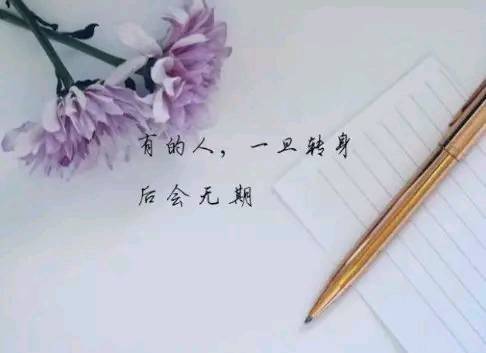 有的人，一旦转身
后会无期